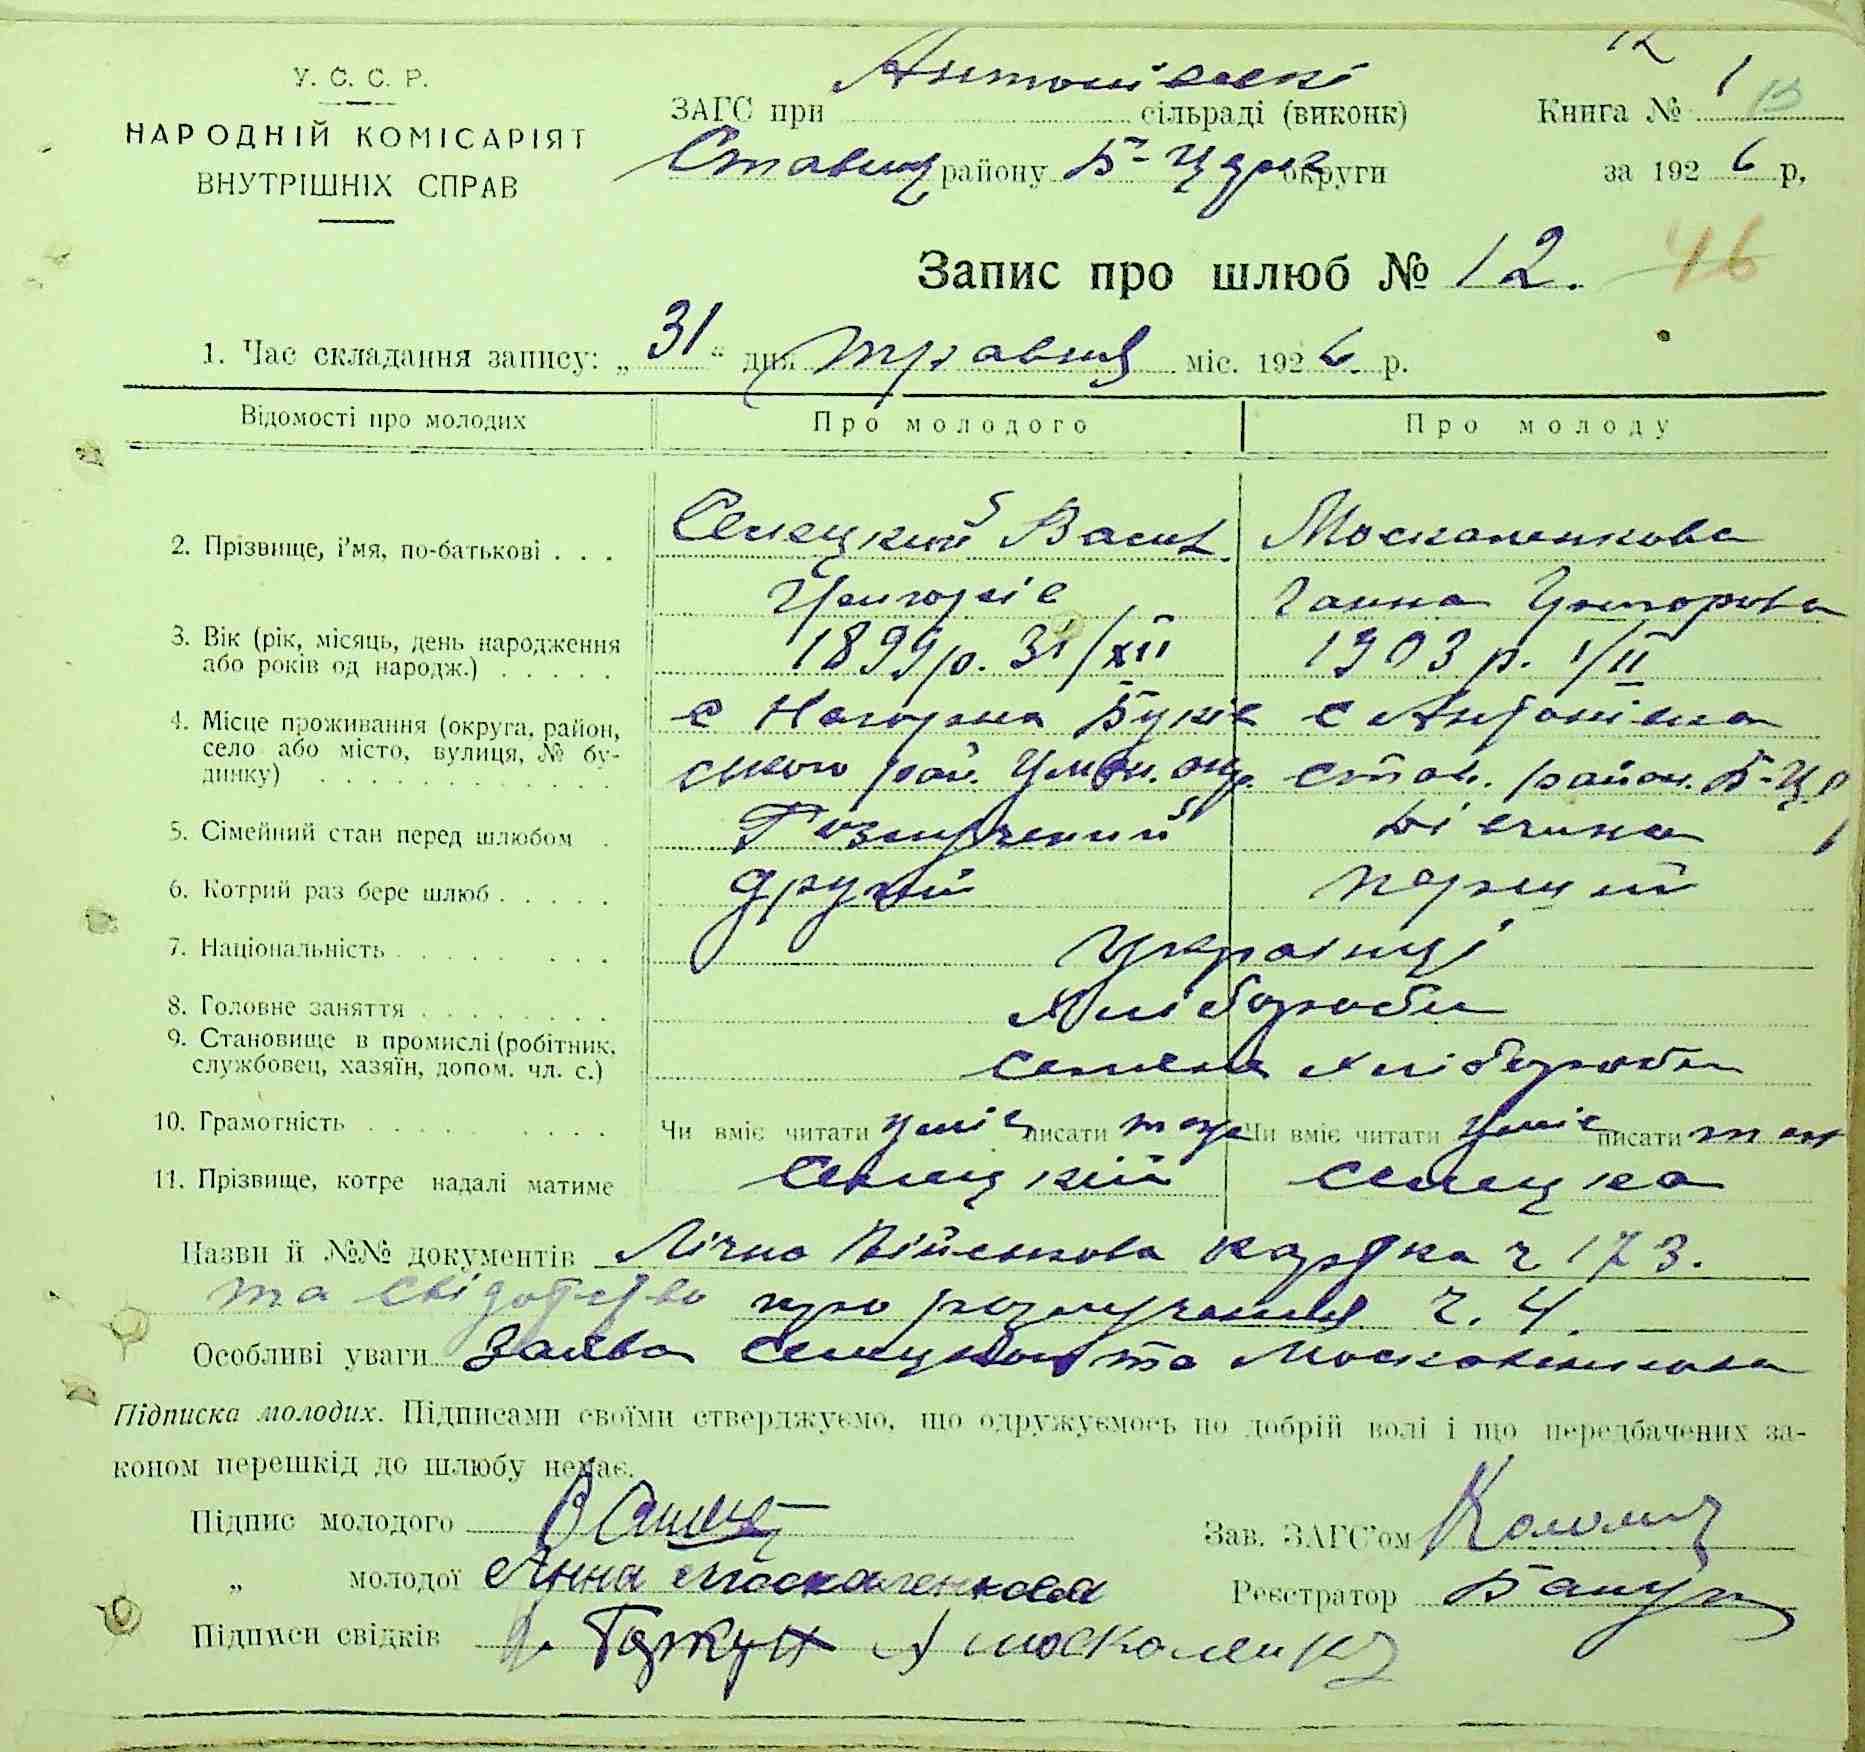 У. С. С. Р.
НАРОДНІЙ КОМІСАРІЯТ
ВНУТРІШНІХ СПРАВ
12
ЗАГС при Антонівські сільраді (виконк)
Книга № 1
Ставищ району Б-Церк округи
за 1926 р,
Запис про шлюб № 12. 46
1. Час складання запису: „31“ дня травня міс. 1926 р.
Відомості про молодих Про молодого Про молоду
2. Прізвище, і'мя, по-батькові . . . Сенецкий Васил Москаленкова
Григорів Ганна Григорова
3. Вік (рік, місяць, день народження або років од народж.) . . . . . 1899 р. 31/XII 1903 р. 1/II
4. Місце проживання (округа, район, село або місто, вулиця, № будинку) . . . с Нагорна Буків с Антонівка
ського рай. Уман. окр. Став. район. Б-Ц
5. Сімейний стан перед шлюбом . Розлучений Дівчина
6. Котрий раз бере шлюб . . . . . другий перший
7. Національність . . . Українці
8. Головне заняття . . . Хлібороби
9. Становище в промислі (робітник, службовец, хазяїн, допом. чл. с.) хлібороби
10. Грамотність . . . Чи вміє читати уміє писати тоже Чи вміє читати уміє писати
11. Прізвище, котре надалі матиме Сенецкий Сенецка
Назви й №№ документів Лічна Військова картка ч 173.
та свідотство про розлучення ч. 4.
Особливі уваги Заява та Москаленкова
Підписка молодих. Підписами своїми стверджуємо, що одружуємось по добрій волі і що передбачених за-
коном перешкід до шлюбу немає.
Підпис молодого
Зав. ЗАГС'ом
„ молодої Анна Москаленкова
Реєстратор
Підписи свідків А Москаленко